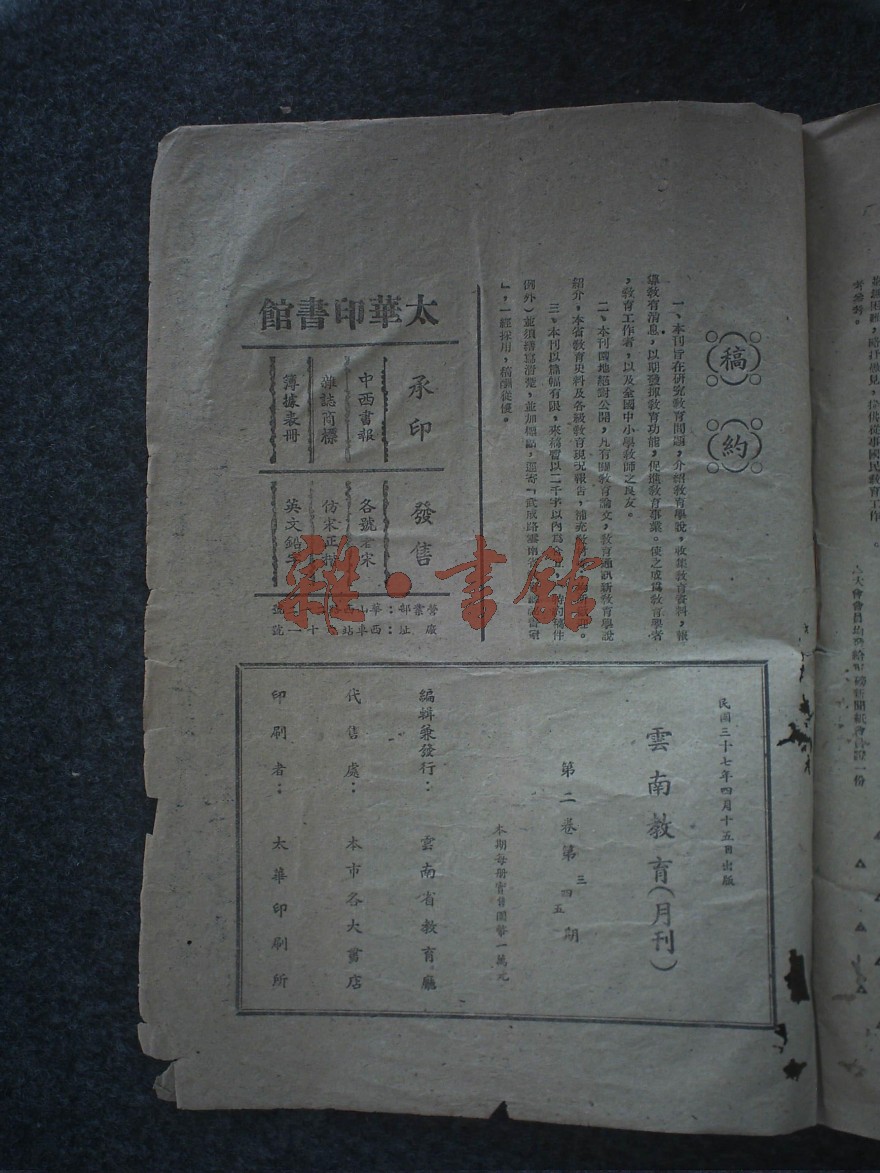 稿約
一、本刊旨在研究教育問題，介紹教育學說，收集教育資料，報
導教育消息，以期發揮教育功能，促進教育事業。使之成為教育學者
，教育工作者，以及全國中小學教師之良友。
二、本刊園地絕對公開，凡有關教育論文，教育通訊新教育學說
紹介，本省教育史料及各級教育現況報告，補充教
三、本刊以篇幅有限，來稿暫以二千字以內為
例外）並須繕寫清楚，並加標點，逕寄「武成路雲南省
」，一經採用，稿酬從優。
太華印書館
承印
中西書報
雜誌商標
簿據表冊
發售
各號老宋
仿宋正楷
英文鉛字
營業部：華山西
廠址：西車站
民國三十七年四月十五日出版
雲南教育（月刊）
第二卷第三四五期
本期每冊實售國幣一萬元
編輯兼發行：雲南省教育廳
代售處：本市各大書店
印刷者：太華印刷所
大會會員均發給
新聞紙會員證一份
雜·書館